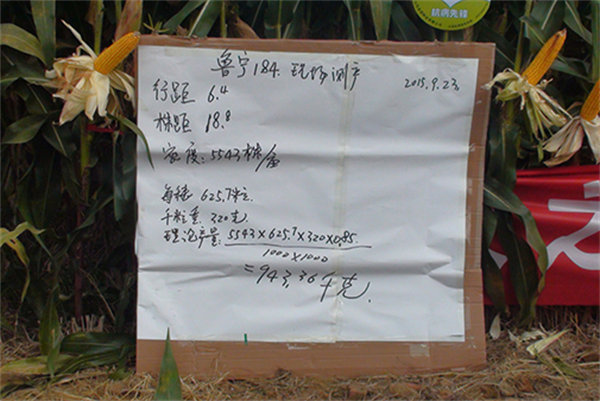 鲁宁184.现场测产
2015.9.23
行距 6.4
株距 18.8
密度:5543株/亩
每穗 625.7粒.
千粒重.320克.
理论产量:5543×625.7×320×0.85
1000×1000
=943.36千克.
抗病先锋